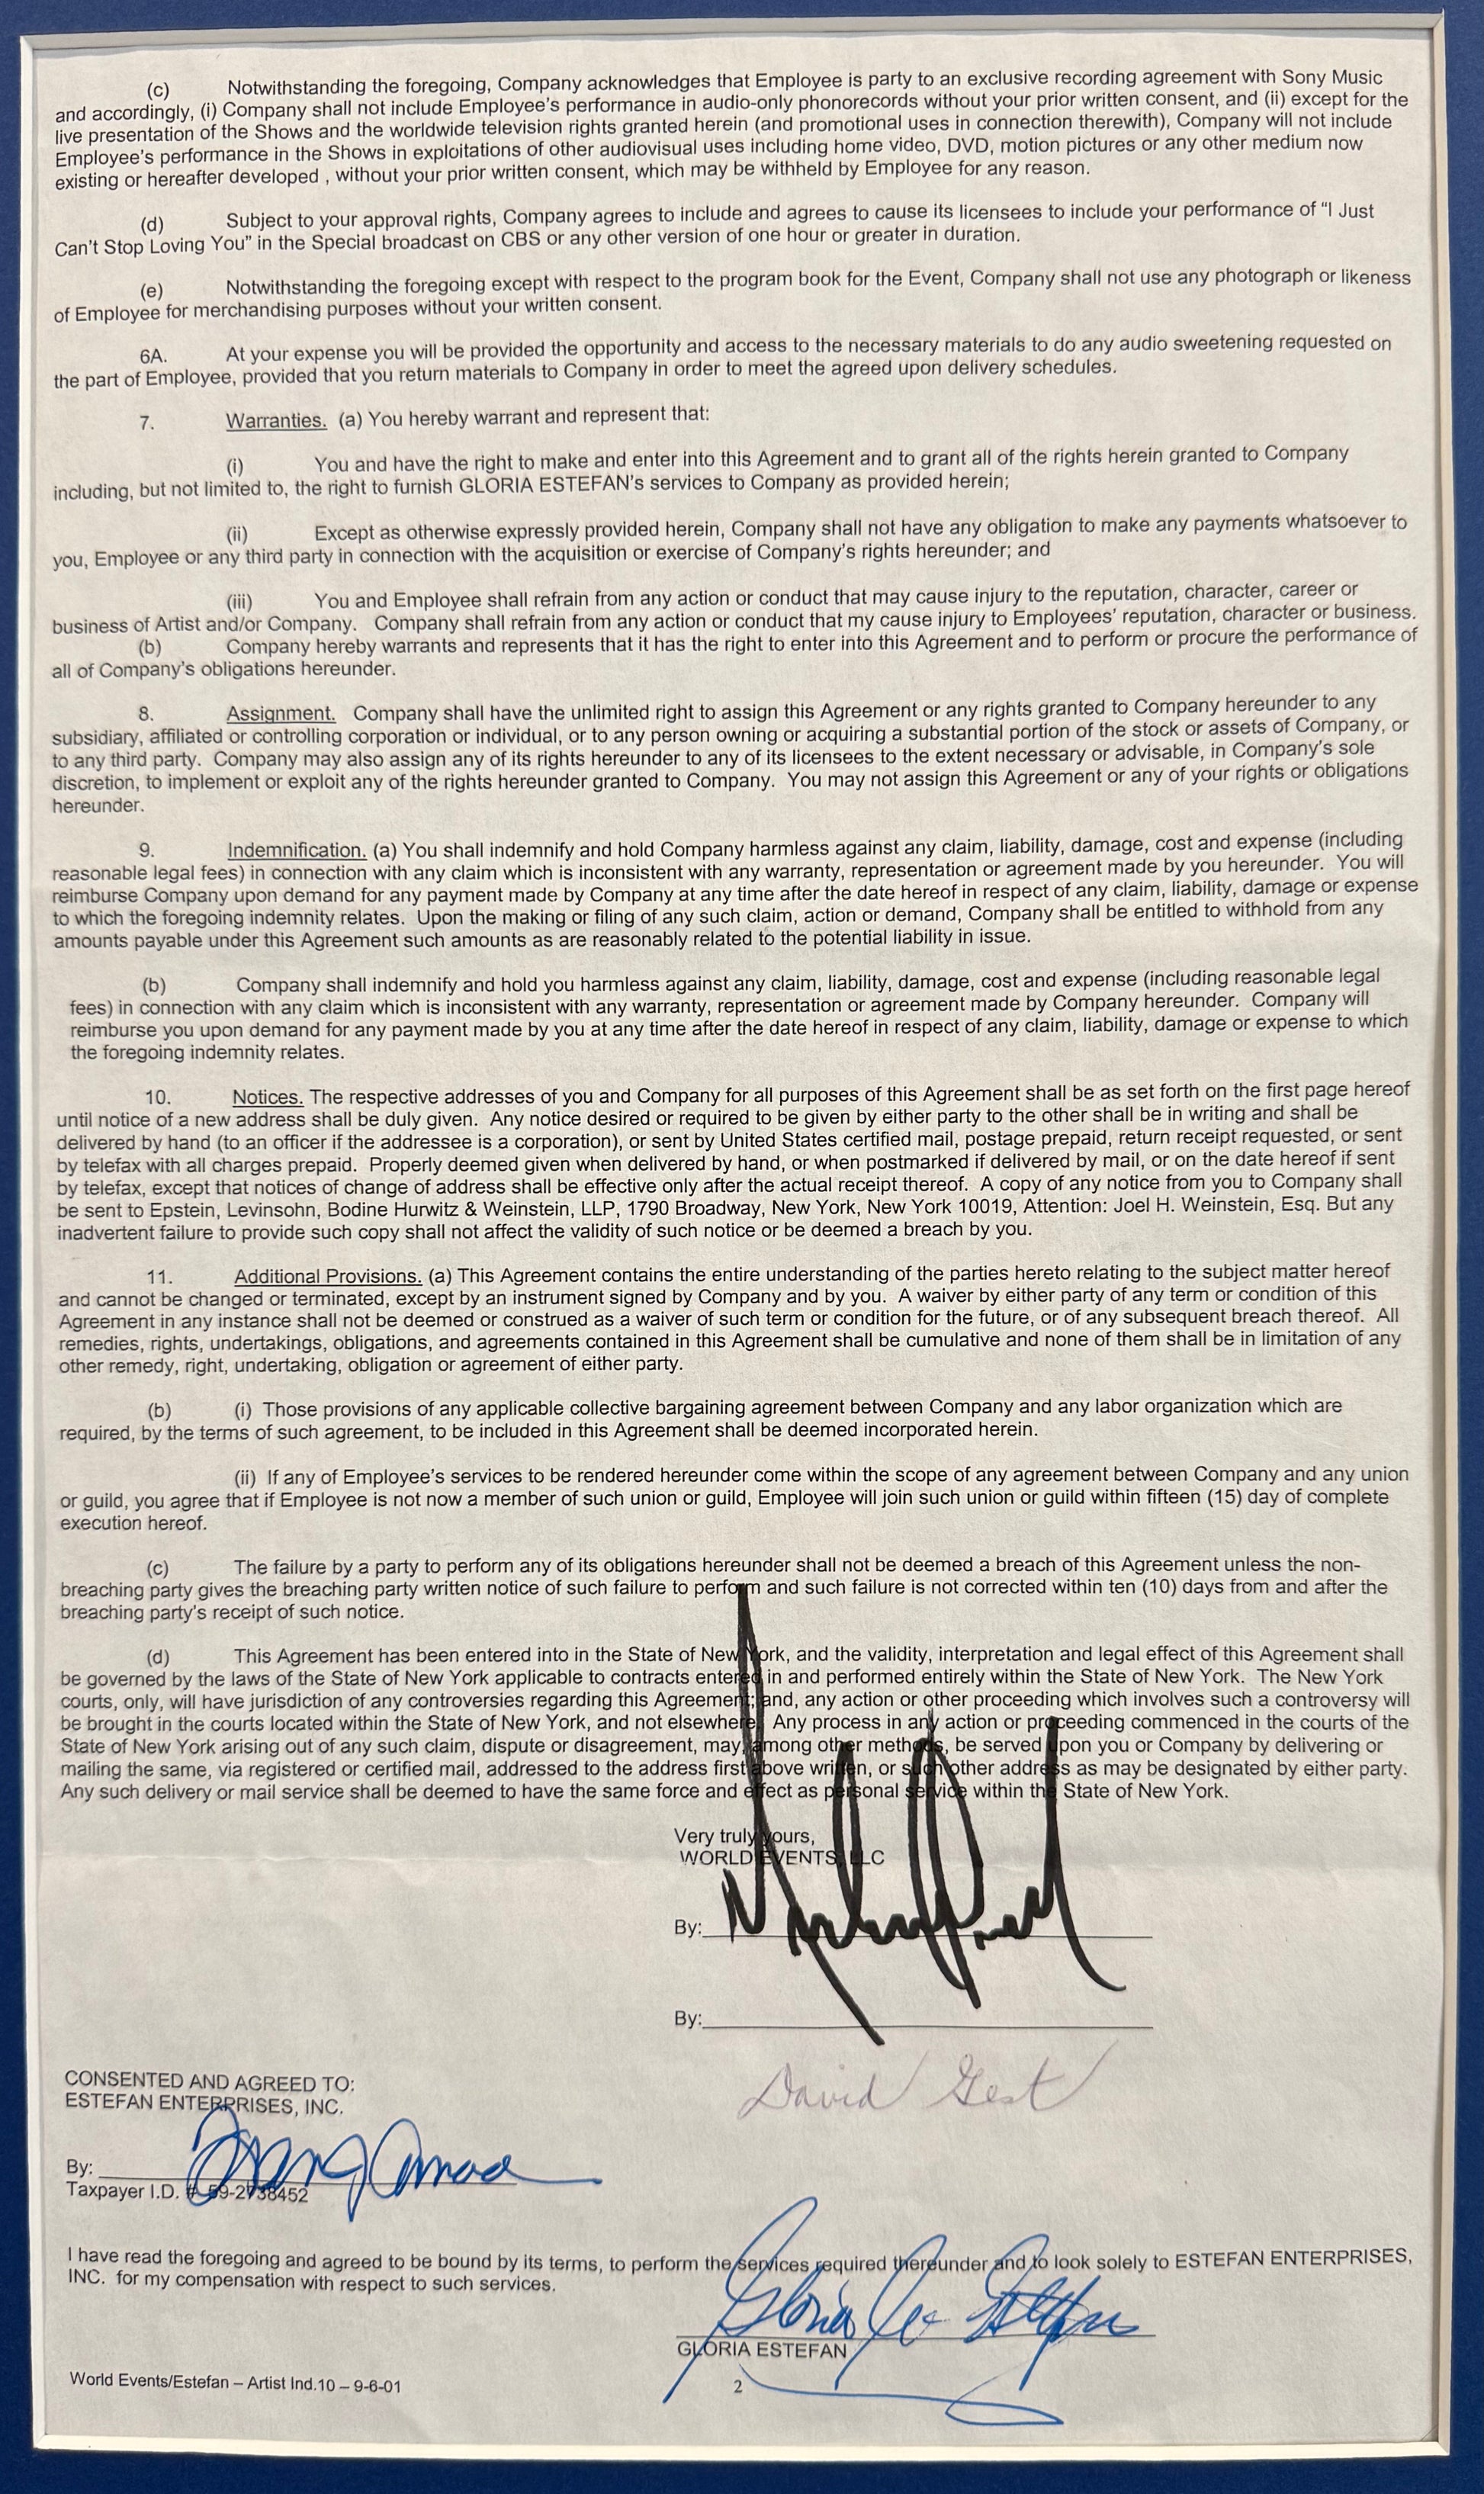 (c) Notwithstanding the foregoing, Company acknowledges that Employee is party to an exclusive recording agreement with Sony Music
and accordingly, (i) Company shall not include Employee's performance in audio-only phonorecords without your prior written consent, and (ii) except for the
live presentation of the Shows and the worldwide television rights granted herein (and promotional uses in connection therewith), Company will not include
Employee's performance in the Shows in exploitations of other audiovisual uses including home video, DVD, motion pictures or any other medium now
existing or hereafter developed , without your prior written consent, which may be withheld by Employee for any reason.
(d) Subject to your approval rights, Company agrees to include and agrees to cause its licensees to include your performance of “I Just
Can't Stop Loving You” in the Special broadcast on CBS or any other version of one hour or greater in duration.
(e) Notwithstanding the foregoing except with respect to the program book for the Event, Company shall not use any photograph or likeness
of Employee for merchandising purposes without your written consent.
6A. At your expense you will be provided the opportunity and access to the necessary materials to do any audio sweetening requested on
the part of Employee, provided that you return materials to Company in order to meet the agreed upon delivery schedules.
7. Warranties. (a) You hereby warrant and represent that:
(i) You and have the right to make and enter into this Agreement and to grant all of the rights herein granted to Company
including, but not limited to, the right to furnish GLORIA ESTEFAN's services to Company as provided herein;
(ii) Except as otherwise expressly provided herein, Company shall not have any obligation to make any payments whatsoever to
you, Employee or any third party in connection with the acquisition or exercise of Company's rights hereunder; and
(iii) You and Employee shall refrain from any action or conduct that may cause injury to the reputation, character, career or
business of Artist and/or Company. Company shall refrain from any action or conduct that my cause injury to Employees' reputation, character or business.
(b) Company hereby warrants and represents that it has the right to enter into this Agreement and to perform or procure the performance of
all of Company's obligations hereunder.
8. Assignment. Company shall have the unlimited right to assign this Agreement or any rights granted to Company hereunder to any
subsidiary, affiliated or controlling corporation or individual, or to any person owning or acquiring a substantial portion of the stock or assets of Company, or
to any third party. Company may also assign any of its rights hereunder to any of its licensees to the extent necessary or advisable, in Company's sole
discretion, to implement or exploit any of the rights hereunder granted to Company. You may not assign this Agreement or any of your rights or obligations
hereunder.
9. Indemnification. (a) You shall indemnify and hold Company harmless against any claim, liability, damage, cost and expense (including
reasonable legal fees) in connection with any claim which is inconsistent with any warranty, representation or agreement made by you hereunder. You will
reimburse Company upon demand for any payment made by Company at any time after the date hereof in respect of any claim, liability, damage or expense
to which the foregoing indemnity relates. Upon the making or filing of any such claim, action or demand, Company shall be entitled to withhold from any
amounts payable under this Agreement such amounts as are reasonably related to the potential liability in issue.
(b) Company shall indemnify and hold you harmless against any claim, liability, damage, cost and expense (including reasonable legal
fees) in connection with any claim which is inconsistent with any warranty, representation or agreement made by Company hereunder. Company will
reimburse you upon demand for any payment made by you at any time after the date hereof in respect of any claim, liability, damage or expense to which
the foregoing indemnity relates.
10. Notices. The respective addresses of you and Company for all purposes of this Agreement shall be as set forth on the first page hereof
until notice of a new address shall be duly given. Any notice desired or required to be given by either party to the other shall be in writing and shall be
delivered by hand (to an officer if the addressee is a corporation), or sent by United States certified mail, postage prepaid, return receipt requested, or sent
by telefax with all charges prepaid. Properly deemed given when delivered by hand, or when postmarked if delivered by mail, or on the date hereof if sent
by telefax, except that notices of change of address shall be effective only after the actual receipt thereof. A copy of any notice from you to Company shall
be sent to Epstein, Levinsohn, Bodine Hurwitz & Weinstein, LLP, 1790 Broadway, New York, New York 10019, Attention: Joel H. Weinstein, Esq. But any
inadvertent failure to provide such copy shall not affect the validity of such notice or be deemed a breach by you.
11. Additional Provisions. (a) This Agreement contains the entire understanding of the parties hereto relating to the subject matter hereof
and cannot be changed or terminated, except by an instrument signed by Company and by you. A waiver by either party of any term or condition of this
Agreement in any instance shall not be deemed or construed as a waiver of such term or condition for the future, or of any subsequent breach thereof. All
remedies, rights, undertakings, obligations, and agreements contained in this Agreement shall be cumulative and none of them shall be in limitation of any
other remedy, right, undertaking, obligation or agreement of either party.
(b) (i) Those provisions of any applicable collective bargaining agreement between Company and any labor organization which are
required, by the terms of such agreement, to be included in this Agreement shall be deemed incorporated herein.
(ii) If any of Employee's services to be rendered hereunder come within the scope of any agreement between Company and any union
or guild, you agree that if Employee is not now a member of such union or guild, Employee will join such union or guild within fifteen (15) day of complete
execution hereof.
(c) The failure by a party to perform any of its obligations hereunder shall not be deemed a breach of this Agreement unless the non-
breaching party gives the breaching party written notice of such failure to perform and such failure is not corrected within ten (10) days from and after the
breaching party's receipt of such notice.
(d) This Agreement has been entered into in the State of New York, and the validity, interpretation and legal effect of this Agreement shall
be governed by the laws of the State of New York applicable to contracts entered in and performed entirely within the State of New York. The New York
courts, only, will have jurisdiction of any controversies regarding this Agreement; and, any action or other proceeding which involves such a controversy will
be brought in the courts located within the State of New York, and not elsewhere. Any process in any action or proceeding commenced in the courts of the
State of New York arising out of any such claim, dispute or disagreement, may, among other methods, be served upon you or Company by delivering or
mailing the same, via registered or certified mail, addressed to the address first above written, or such other address as may be designated by either party.
Any such delivery or mail service shall be deemed to have the same force and effect as personal service within the State of New York.
Very truly yours,
WORLD EVENTS, LLC
By:
By:
David Gest
CONSENTED AND AGREED TO:
ESTEFAN ENTERPRISES, INC.
By:
Taxpayer I.D. # 59-2738452
I have read the foregoing and agreed to be bound by its terms, to perform the services required thereunder and to look solely to ESTEFAN ENTERPRISES,
INC. for my compensation with respect to such services.
Gloria Estefan
GLORIA ESTEFAN
World Events/Estefan – Artist Ind.10 – 9-6-01
2